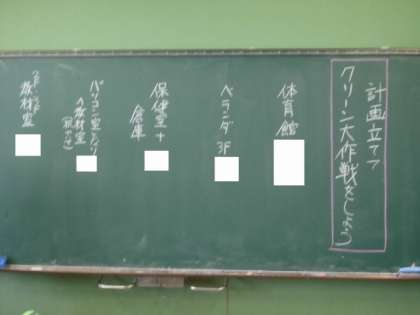 計画立てて
クリーン大作戦をしよう
体育館
ベランダ
3F
保健室+
倉庫
パソコン室となり
教材室